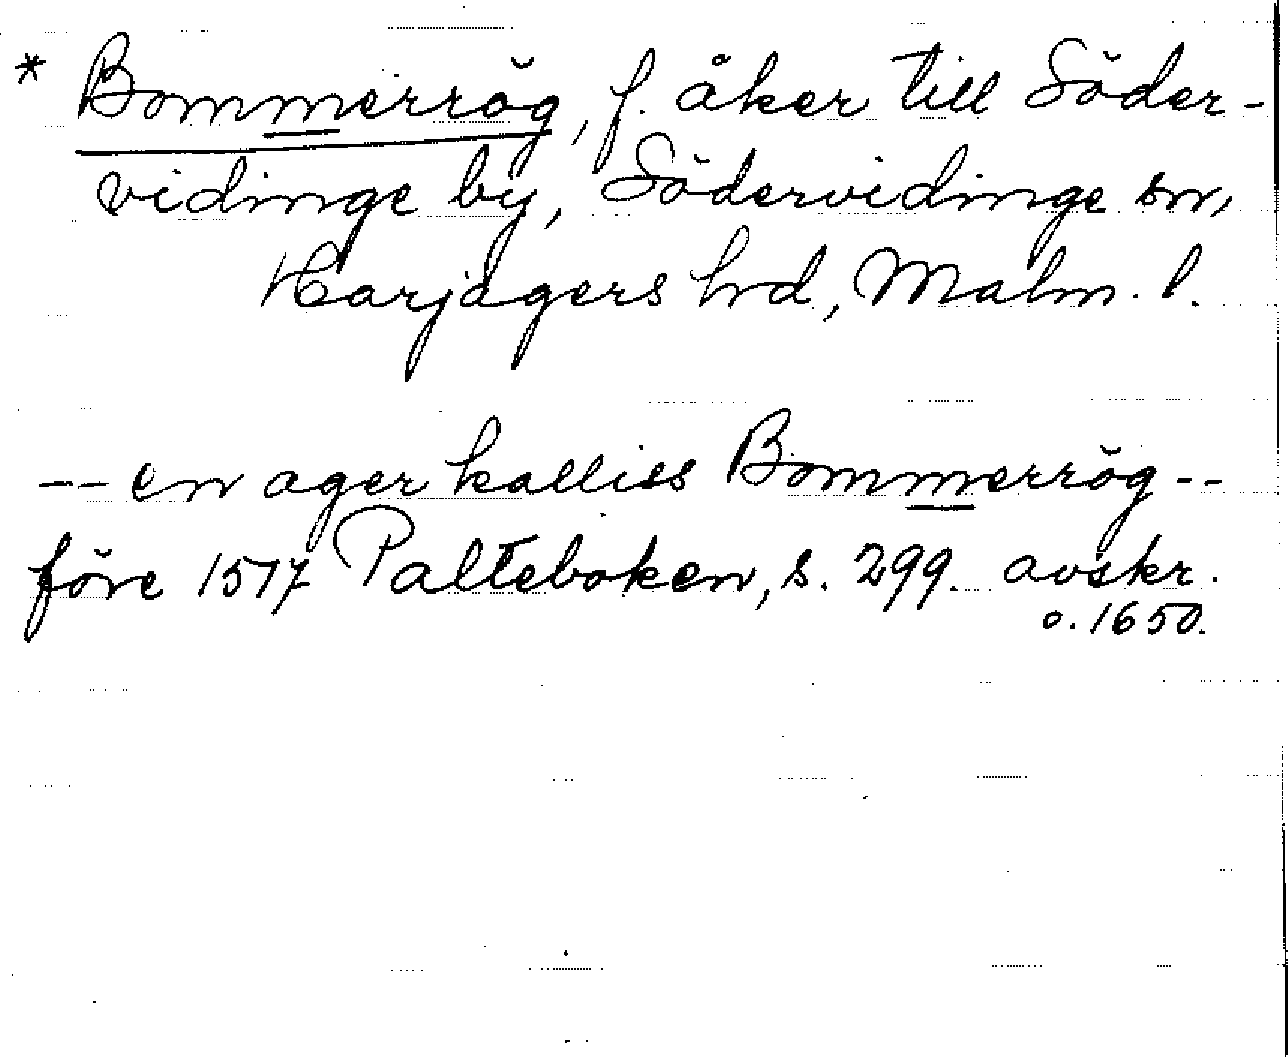 * Bommerrög, f. åker till Söder-
vidinge by, Södervidinge sn,
Harjagers hrd, Malm. l.
-- en ager kalliss Bommerrög --
före 1517 Palteboken, s. 299. avskr.
o. 1650.